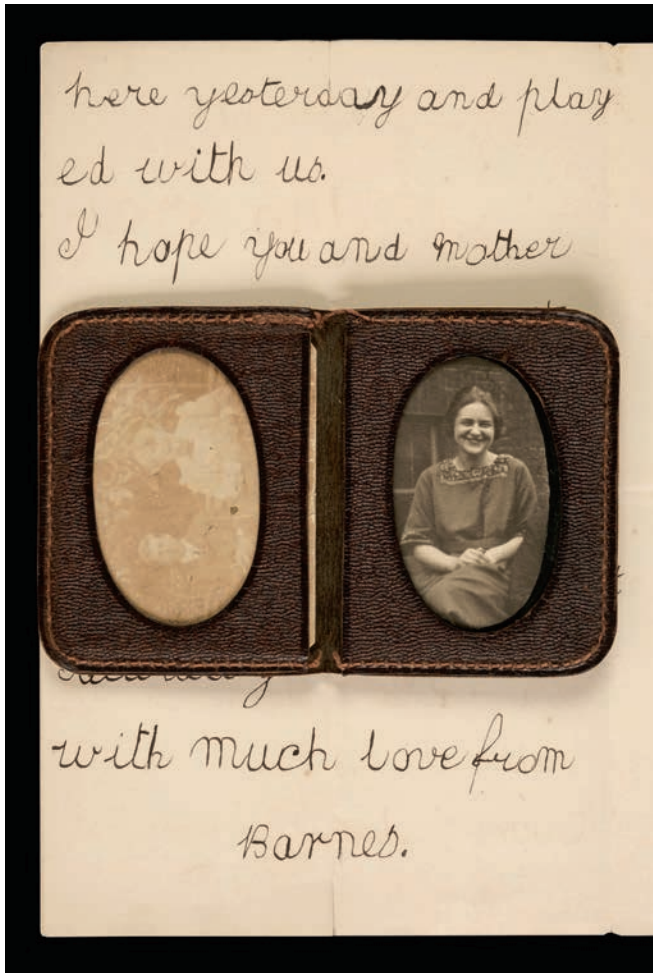 here yesterday and play
ed with us.
I hope you and mother
with much love from
Barnes.